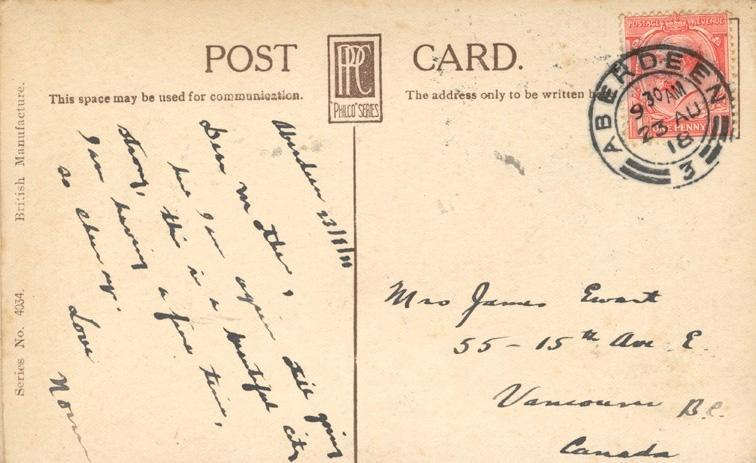 POST CARD.
PPC
"PHILCO" SERIES
This space may be used for communication.
The address only to be written
British Manufacture.
Series No. 4034.
POSTAGE REVENUE
PENNY
ABERDEEN
9 30 AM
23 AU
18
3
Aberdeen 23/8/18
Dear Mother,
here I am again still going
strong, this is a beautiful city
I am having a fine time,
so cheer up.
Love
Norm
Mrs James Ewart
55 - 15th Ave E.
Vancouver B.C.
Canada